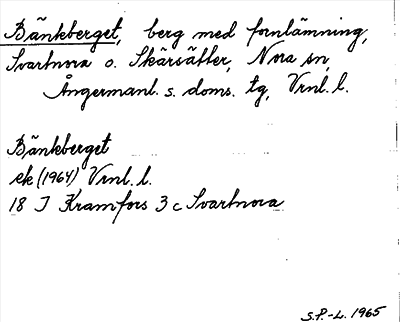 Bänkberget, berg med fornlämning,
Svartnora o. Skärsätter, Nora sn,
Ångermanl. s. doms. tg, Vrnl. l.
Bänkberget
ek (1964) Vrnl. l.
18 I Kramfors 3 c Svartnora
S.P.-L. 1965